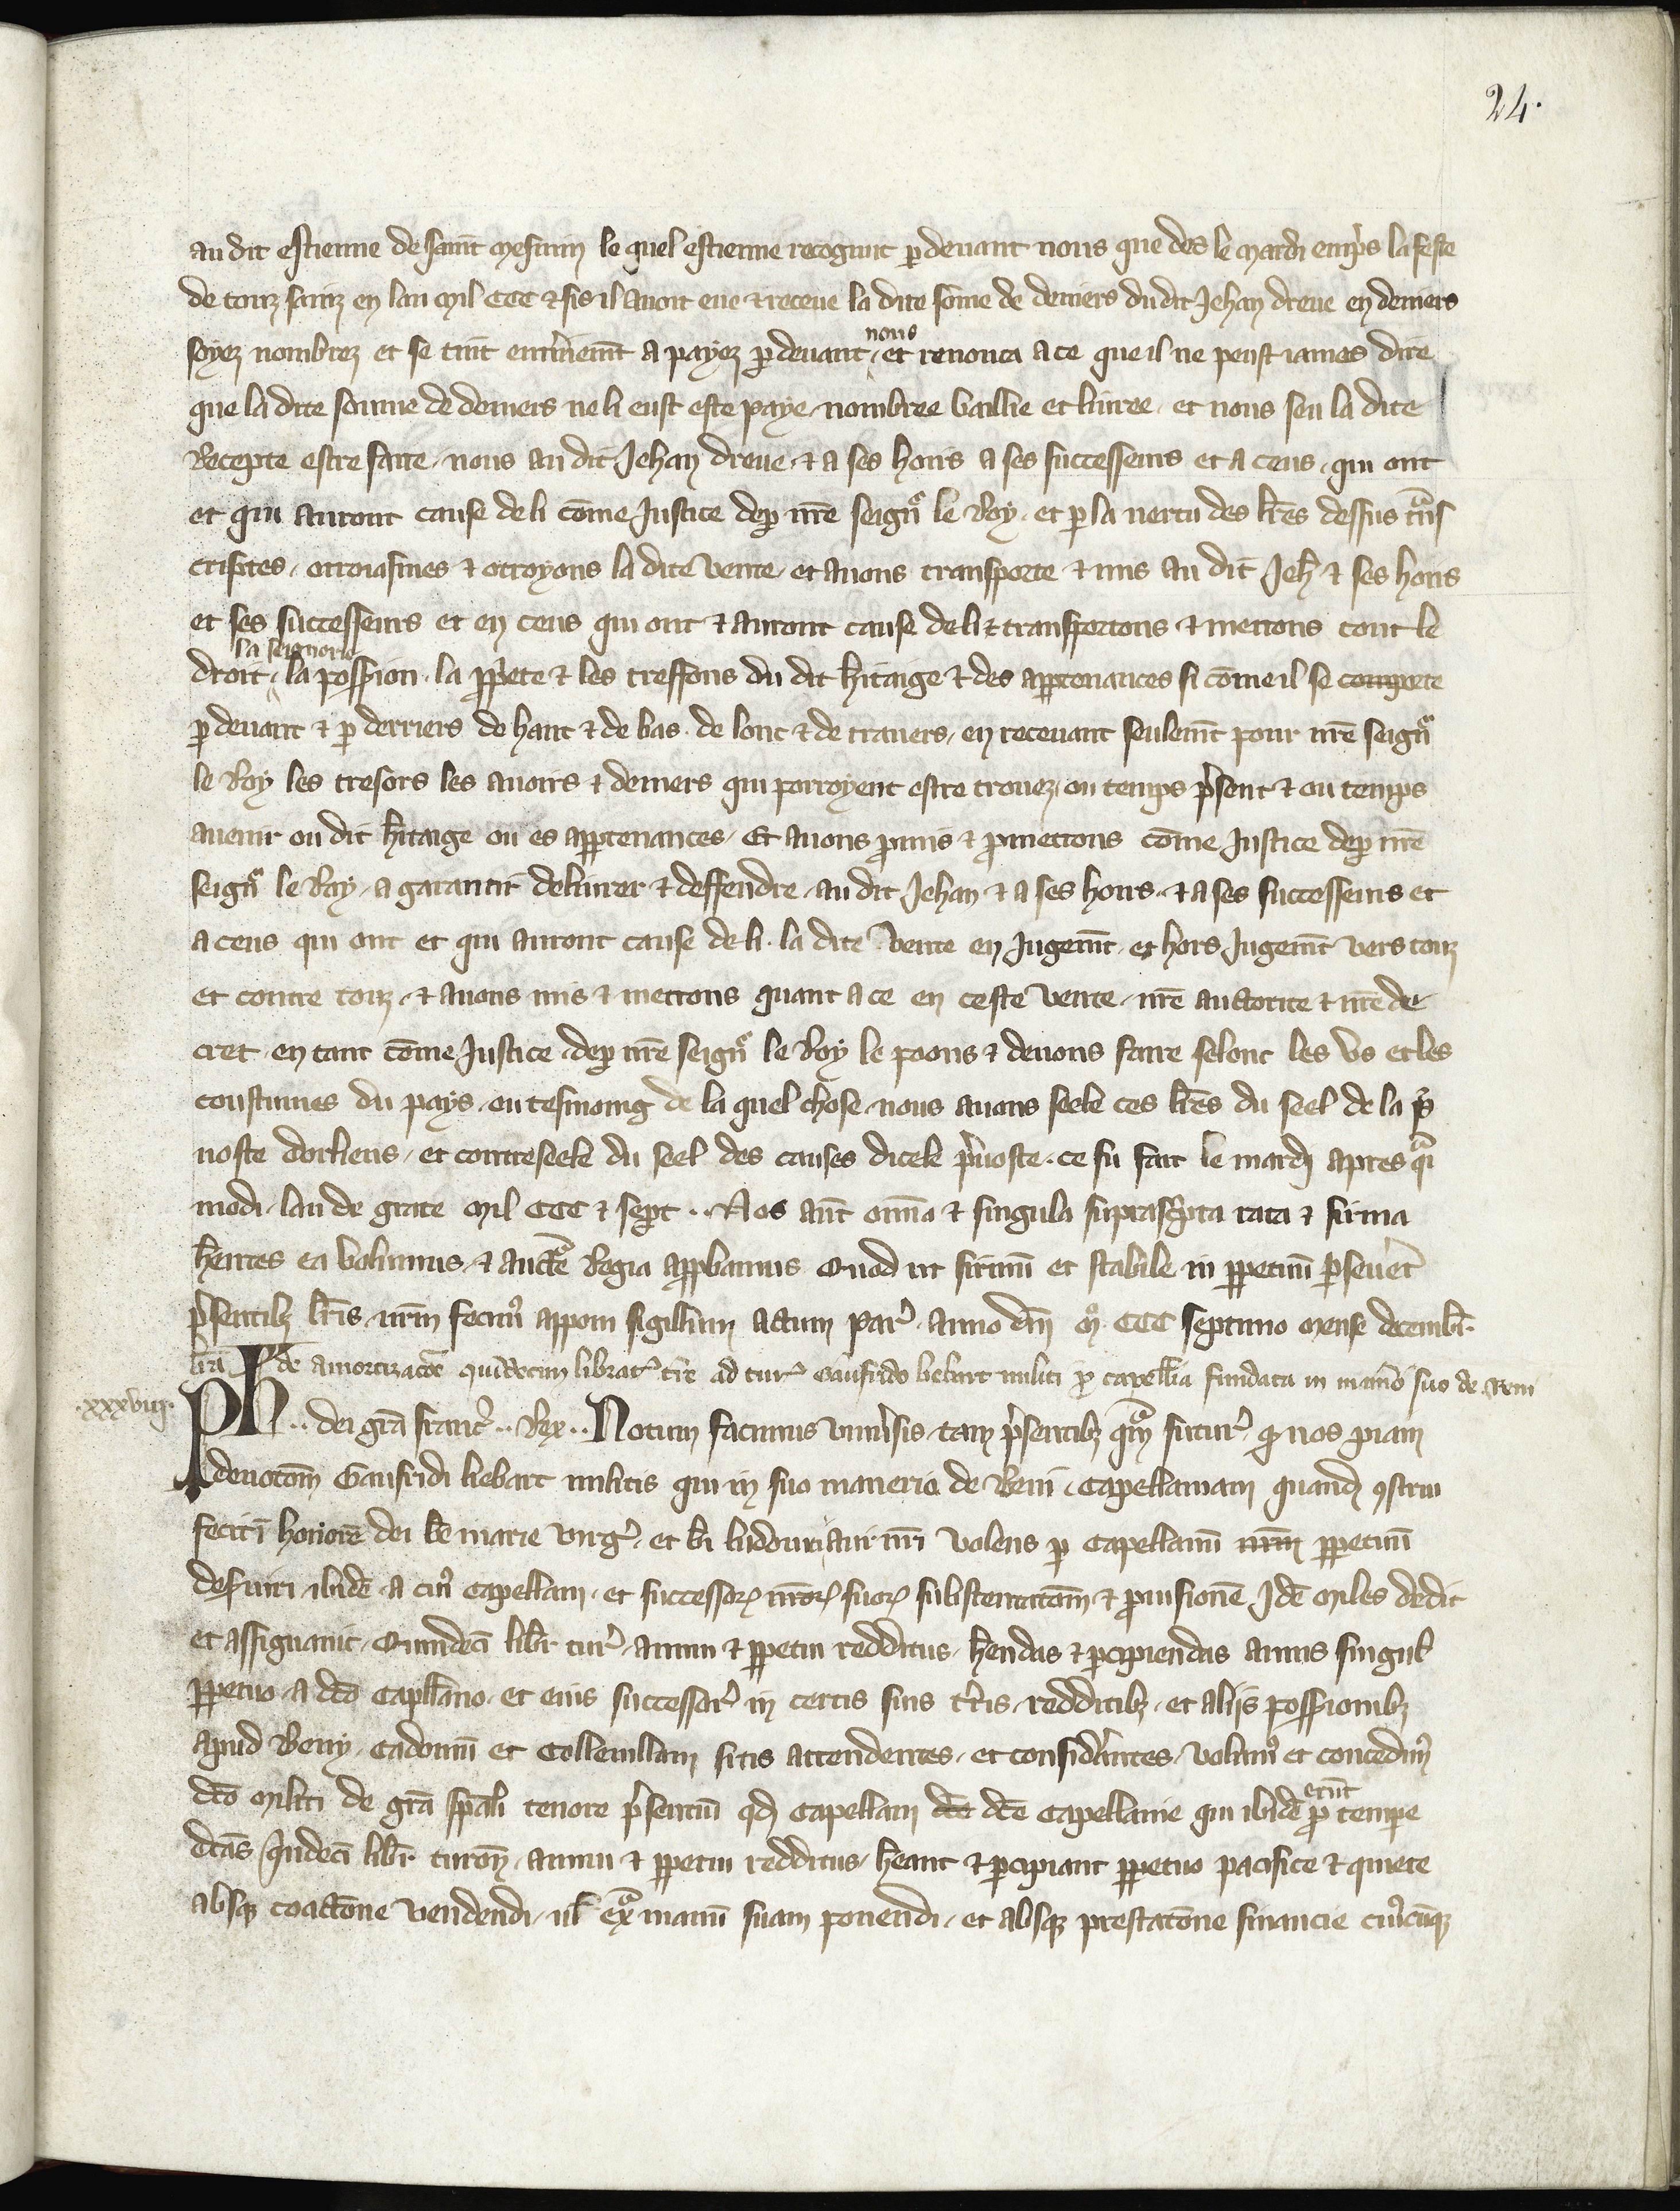 24.
au dit estienne de saint mesmin le quel estienne recognut ꝑ devant nous que des le mardi enp̃s la feste
de touz sainz en lan mil CCC ⁊ sis il avoit eue ⁊ receue la dite som̃e de deniers du dit Jehan dreue en deniers
soyez nombrez et se tint entierem̃t a payez ꝑ devant nous et renonca a ce que il ne peust iames dire
que la dite somme de deniers ne li eust este paye nombree baillie et livree et nous seu la dite
Recepte estre faite nous au dit Jehan dreue ⁊ a ses hoirs a ses successeurs et a ceus qui ont
et qui auront cause de li com̃e Justice de ꝑ nr̃e seign̄r le Roy et ꝑ la vertu des lr̃es dessus tͣns
criptes otroiasmes ⁊ otroyons la dite vente et avons transporte ⁊ mis au dit Jeh̃ ⁊ ses hoirs
et ses successeurs et en ceus qui ont ⁊ auront cause de li ⁊ transportons ⁊ metons tout le
droit la seignorie la possion la ꝓpete ⁊ les treffons du dit h̃itaige ⁊ des aꝑtenances si com̃e il se compete
ꝑ devant ⁊ ꝑ derriers de haut ⁊ de bas de lonc ⁊ de travers en recevant seulem̃t pour nr̃e seign̄r
le Roy les tresors les avoirs ⁊ deniers qui porroyent estre trovez ou temps p̃sent ⁊ ou temps
avenir ou dit h̃itaige ou es aꝑtenances Et avons ꝓmis ⁊ ꝓmettons com̃e Justice de ꝑ nr̃e
seign̄r le Roy a garantir delivrer ⁊ deffendre au dit Jehan ⁊ a ses hoirs ⁊ a ses successeurs et
a ceus qui ont et qui auront cause de li la dite vente en Jugem̃t et hors Jugem̃t vers touz
et contre touz ⁊ avons mis ⁊ mettons quant a ce en ceste vente nr̃e auctorite ⁊ nr̃e de
cret en tant com̃e Justice de ꝑ nr̃e seign̄r le Roy le poons ⁊ devons faire selonc les us et les
coustumes du pays ou tesmoing de la quel chose nous avons seele ces lr̃es du seel de la p̃
voste dorliens et contreseele du seel des causes dicele p̃voste ce fu fait le mardi apres qͣi
modi lan de grace mil CCC ⁊ sept .. Nos aũt om̃ia ⁊ singula suprasc̃pta rata ⁊ firma
h̃entes ea volumus ⁊ auct̃e Regia apꝓbamus Quod ut firmũ et stabile in ꝑpetuũ ꝑsev̾et
p̃sentib; lr̃is nr̃m fecim̾ apponi sigillum actum par̾ anno dñi mͦ CCC septimo mense decembr̾.
lr̃a de amortizac̃oe quindecim librat̾ t̃re ad tur̾ Gaufrido hebart militi ꝓ capell̃ia fundata in man̾io suo de Reni
.xxxviij.
Ph̃ .. dei gr̃a franc̾ .. Rex .. Notum facimus univ̾sis tam p̃sentib; qͣm futur̾ ꝙ nos piam
devoto͠m Gaufridi hebart militis qui in suo manerio de Reni capellaniam quand̾ ꝯstrui
fecit ĩ honorẽ dei be marie virg̾ et bi ludovici avi nr̃i volens ꝑ capellanũ nr̃m ꝑpetuũ
des̾viri ibidẽ a cui̾ capellani et successoꝝ nr̃oꝝ suoꝝ substentato͠m ⁊ ꝓvisionẽ Jdẽ miles dedit
et assignavit Quindeci libr̾ tur̾ annui ⁊ ꝑpetui redditus h̃endas ⁊ ꝑcipiendas annis singul̾
ꝑpetuo a dc̃o capll̃ano et eius successor̾ in certis suis t̃ris redditib; et aliis possionib;
apud Reny Cadomũ et Collevillam sitis attendentes et consid̾antes volum̾ et concedim̾
dc̃o militi de gr̃a sp̃ali tenore p̃sentiũ qd̾ capellani dc̃e dc̃e capellanie qui ibidẽ ꝓ tempe erũt
dc̃as Qindeci libr̾ turoñ annui ⁊ ꝑpetui redditus h̃eant ⁊ ꝑcipiant ꝑpetuo pacifice ⁊ quiete
absq; coacto͠ne vendendi ul̾ exͣ manũ suam ponendi et absq; prestato͠ne financie cui̾cũq;